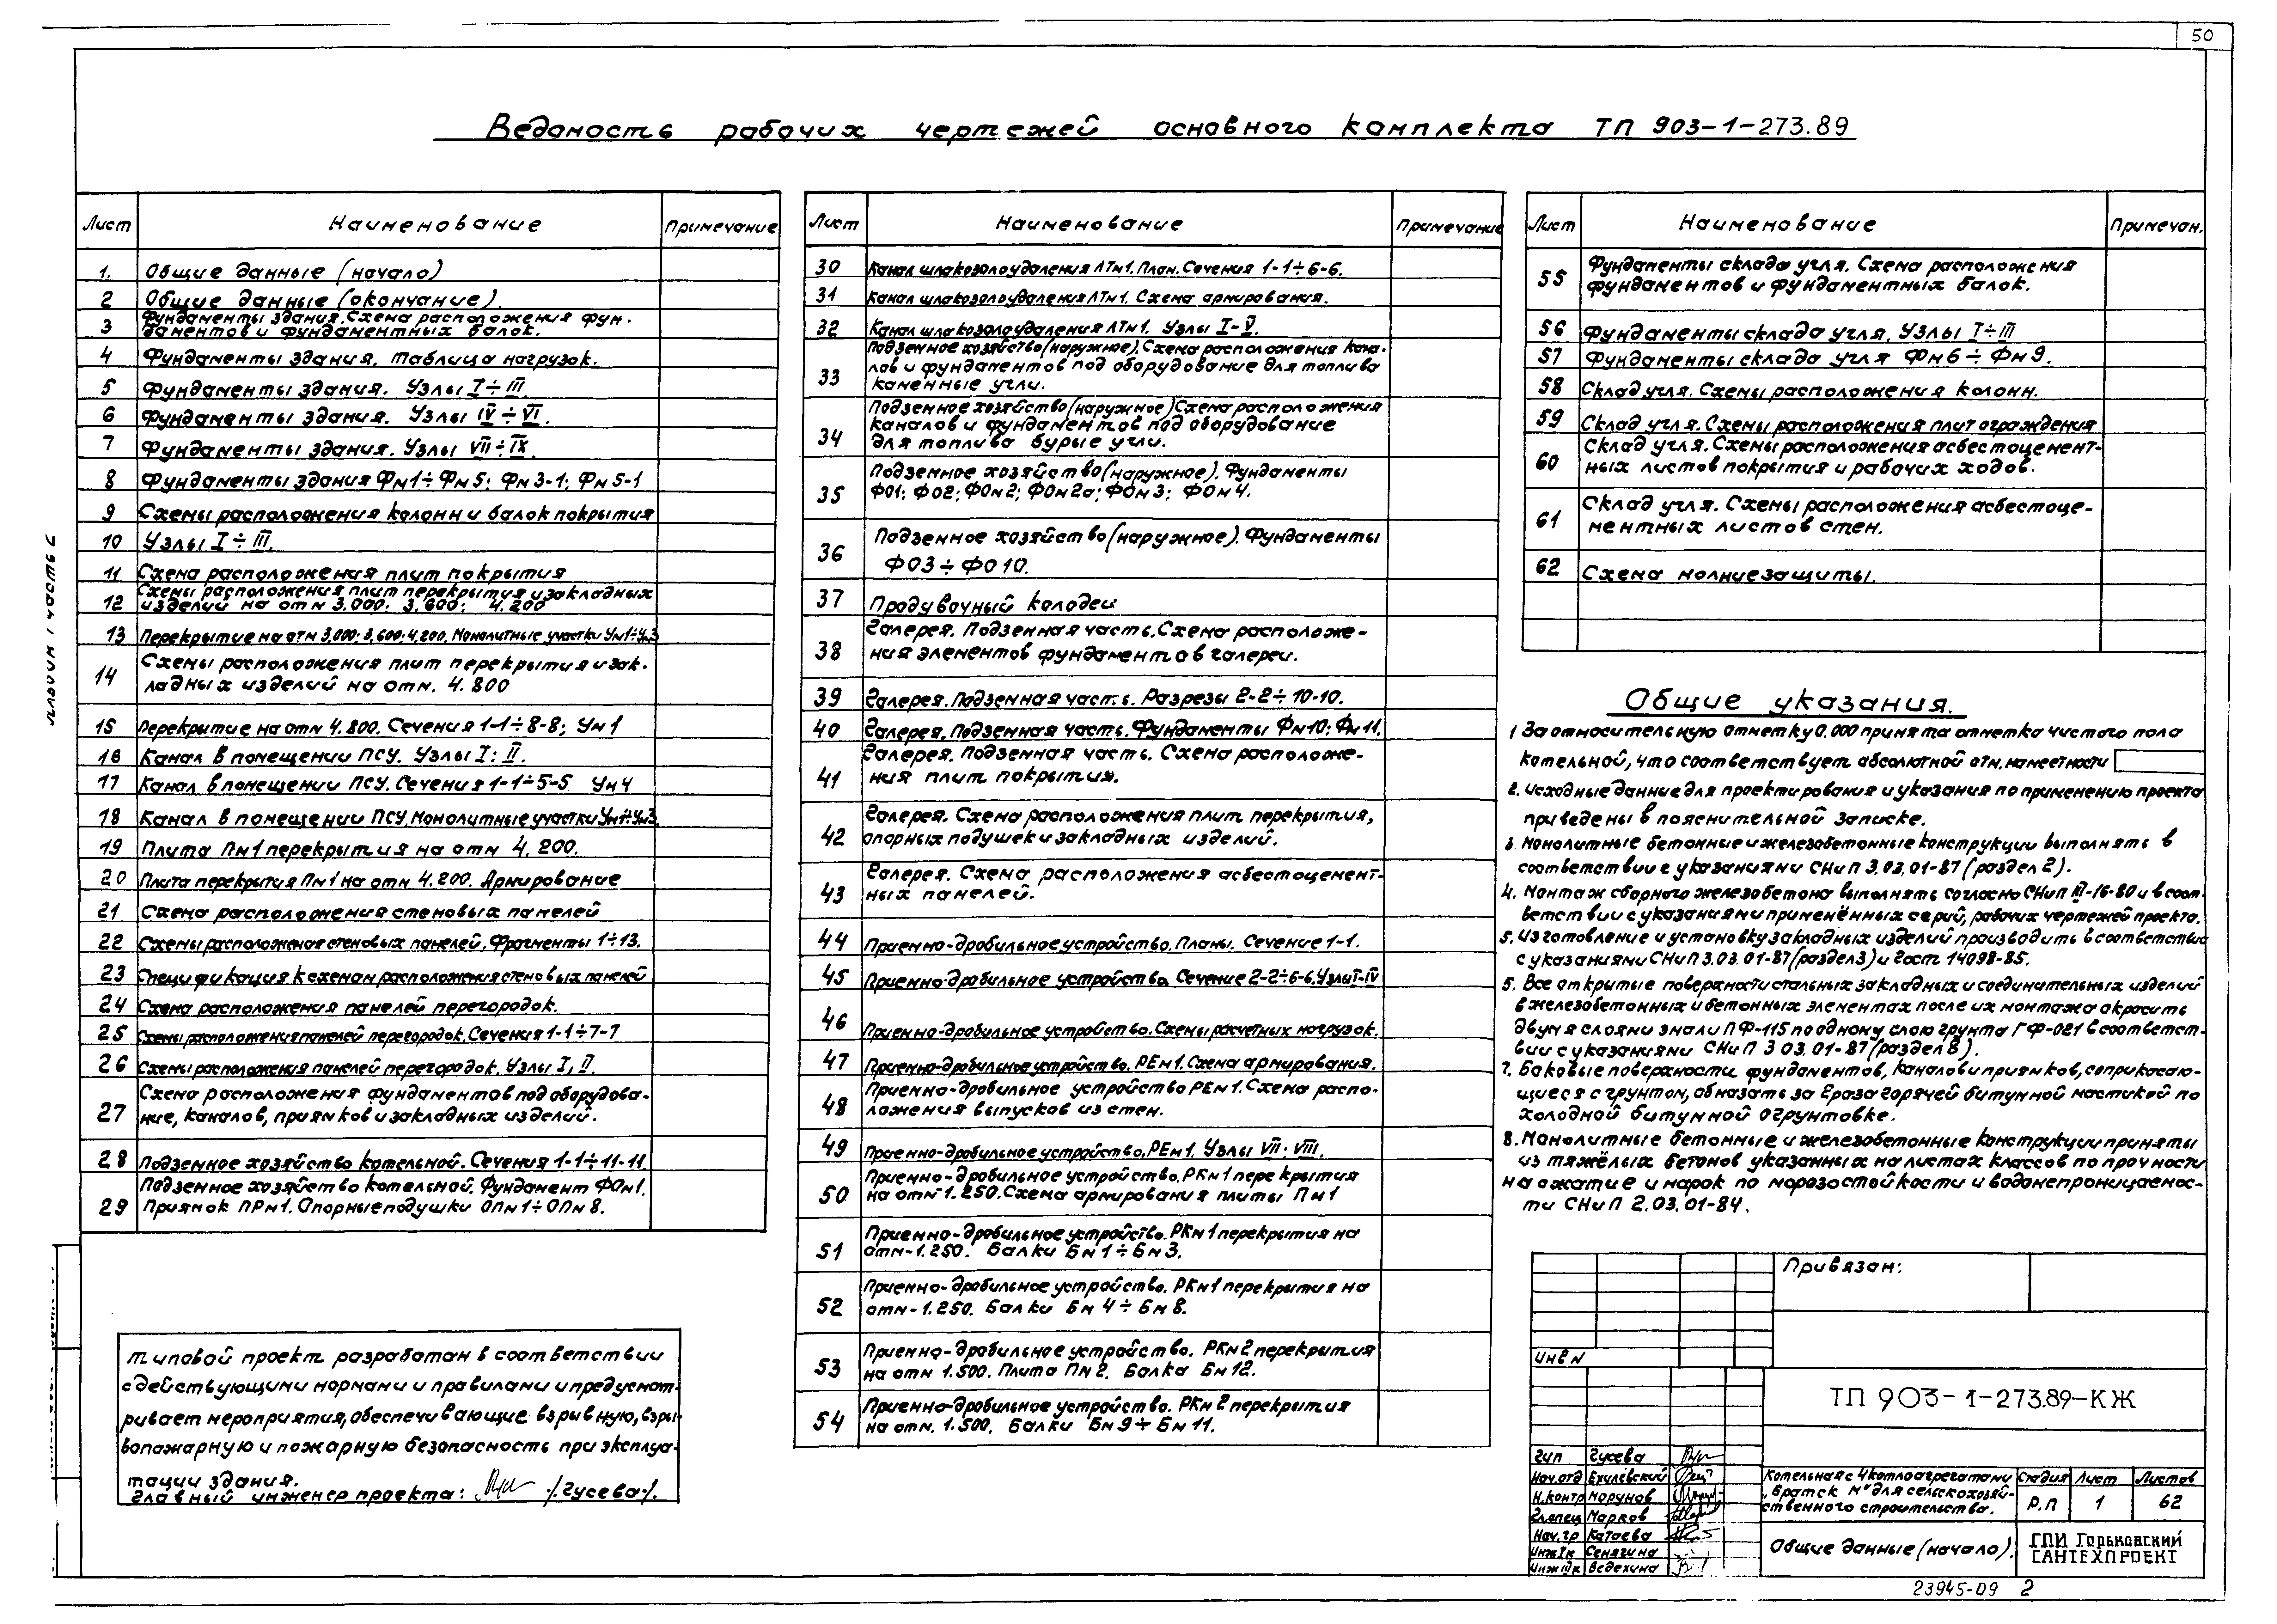 50
Ведомость рабочих чертежей основного комплекта ТП 903-1-273.89
Лист Наименование Примечание
1. Общие данные (начало)
2 Общие данные (окончание).
3 Фундаменты здания. Схема расположения фун-
даментов и фундаментных балок.
4 Фундаменты здания. Таблица нагрузок.
5 Фундаменты здания. Узлы I÷III.
6 Фундаменты здания. Узлы IV÷VI.
7 Фундаменты здания. Узлы VII÷IX.
8 Фундаменты здания Фм1÷Фм5; Фм3-1; Фм5-1
9 Схемы расположения колонн и балок покрытия
10 Узлы I÷III.
11 Схема расположения плит покрытия
12 Схемы расположения плит перекрытия и закладных
изделий на отм 3.000; 3.600; 4.200
13 Перекрытие на отм 3.000; 3.600; 4.200. Монолитные участки Ум1÷Ум3
14 Схемы расположения плит перекрытия и зак-
ладных изделий на отм. 4.800
15 Перекрытие на отм 4.800. Сечения 1-1÷8-8; Ум1
16 Канал в помещении ПСУ. Узлы I; II.
17 Канал в помещении ПСУ. Сечения 1-1÷5-5 Ум4
18 Канал в помещении ПСУ. Монолитные участки Ум1÷Ум3.
19 Плита Пм1 перекрытия на отм 4.200.
20 Плита перекрытия Пм1 на отм 4.200. Армирование
21 Схема расположения стеновых панелей
22 Схемы расположения стеновых панелей. Фрагменты 1÷13.
23 Спецификация к схемам расположения стеновых панелей
24 Схема расположения панелей перегородок.
25 Схемы расположения панелей перегородок. Сечения 1-1÷7-7
26 Схемы расположения панелей перегородок. Узлы I, II.
27 Схема расположения фундаментов под оборудова-
ние, каналов, приямков и закладных изделий.
28 Подземное хозяйство котельной. Сечения 1-1÷11-11.
29 Подземное хозяйство котельной. Фундамент ФОм1.
Приямок ПРм1. Опорные подушки ОПм1÷ОПм8.
Типовой проект разработан в соответствии
с действующими нормами и правилами и предусмат-
ривает мероприятия, обеспечивающие взрывную, взры-
вопажарную и пожарную безопасность при эксплуа-
тации здания.
Главный инженер проекта: /Гусева/.
Лист Наименование Примечание
30 Канал шлакозолоудаления ЛТм1. План. Сечения 1-1÷6-6.
31 Канал шлакозолоудаления ЛТм1. Схема армирования.
32 Канал шлакозолоудаления ЛТм1. Узлы I-V.
33 Подземное хозяйство (наружное). Схема расположения кана-
лов и фундаментов под оборудование для топлива
каменные угли.
34 Подземное хозяйство (наружное) Схема расположения
каналов и фундаментов под оборудование
для топлива бурые угли.
35 Подземное хозяйство (наружное). Фундаменты
Ф01; Ф02; Ф0м2; Ф0м2а; Ф0м3; Ф0м4.
36 Подземное хозяйство (наружное). Фундаменты
Ф03÷Ф010.
37 Продувочный колодец
38 Галерея. Подземная часть. Схема расположе-
ния элементов фундаментов галереи.
39 Галерея. Подземная часть. Разрезы 2-2÷10-10.
40 Галерея. Подземная часть. Фундаменты Фм10; Фм11.
41 Галерея. Подземная часть. Схема расположе-
ния плит покрытия.
42 Галерея. Схема расположения плит перекрытия,
опорных подушек и закладных изделий.
43 Галерея. Схема расположения асбестоцемент-
ных панелей.
44 Приемно-дробильное устройство. Планы. Сечение 1-1.
45 Приемно-дробильное устройство. Сечение 2-2÷6-6. Узлы I-IV
46 Приемно-дробильное устройство. Схемы расчетных нагрузок.
47 Приемно-дробильное устройство. РЕм1. Схема армирования.
48 Приемно-дробильное устройство РЕм1. Схема распо-
ложения выпусков из стен.
49 Приемно-дробильное устройство, РЕм1. Узлы VII; VIII.
50 Приемно-дробильное устройство. РКм1 перекрытия
на отм-1.250. Схема армирования плиты Пм1
51 Приемно-дробильное устройство. РКм1 перекрытия на
отм-1.250. Балки Бм1÷Бм3.
52 Приемно-дробильное устройство. РКм1 перекрытия на
отм-1.250. Балки Бм4÷Бм8.
53 Приемно-дробильное устройство. РКм2 перекрытия
на отм 1.500. Плита Пм2. Балка Бм12.
54 Приемно-дробильное устройство. РКм2 перекрытия
на отм. 1.500. Балки Бм9÷Бм11.
Лист Наименование Примечан.
55 Фундаменты склада угля. Схема расположения
фундаментов и фундаментных балок.
56 Фундаменты склада угля. Узлы I÷III
57 Фундаменты склада угля Фм6÷Фм9.
58 Склад угля. Схемы расположения колонн.
59 Склад угля. Схемы расположения плит ограждения
60 Склад угля. Схемы расположения асбестоцемент-
ных листов покрытия и рабочих ходов.
61 Склад угля. Схемы расположения асбестоце-
ментных листов стен.
62 Схема молниезащиты.
Общие указания.
1 За относительную отметку 0.000 принята отметка чистого пола
котельной, что соответствует абсолютной отм. на местности
2. Исходные данные для проектирования и указания по применению проекта
приведены в пояснительной записке.
3. Монолитные бетонные и железобетонные конструкции выполнять в
соответствии с указаниями СНиП 3.03.01-87 (раздел 2).
4. Монтаж сборного железобетона выполнять согласно СНиП III-16-80 и в соот-
ветствии с указаниями применённых серий, рабочих чертежей проекта.
5. Изготовление и установку закладных изделий производить в соответствии
с указаниями СНиП 3.03.01-87 (раздел 3) и Гост 14098-85.
5. Все открытые поверхности стальных закладных и соединительных изделий
в железобетонных и бетонных элементах после их монтажа окрасить
двумя слоями эмали ПФ-115 по одному слою грунта ГФ-021 в соответст-
вии с указаниями СНиП 3 03.01-87 (раздел 8).
7. Боковые поверхности фундаментов, каналов и приямков, соприкасаю-
щиеся с грунтом, обмазать за 2 раза горячей битумной мастикой по
холодной битумной огрунтовке.
8. Монолитные бетонные и железобетонные конструкции приняты
из тяжёлых бетонов указанных на листах классов по прочности
на сжатие и марок по морозостойкости и водонепроницаемос-
ти СНиП 2.03.01-84.
Привязан:
Инв N
ТП 903-1-273.89-КЖ
Гип Гусева
Нач.отд Ехилевский
Н.контр Морунов
Гл.спец Марков
Нач.гр Катаева
Инж Iк Сенягина
Инж IIк Ведехина
Котельная с 4 котлоагрегатами
„Братск М" для сельскохозяй-
ственного строительства.
Стадия Лист Листов
Р.П 1 62
Общие данные (начало).
ГПИ Горьковский
САНТЕХПРОЕКТ
23945-09 2